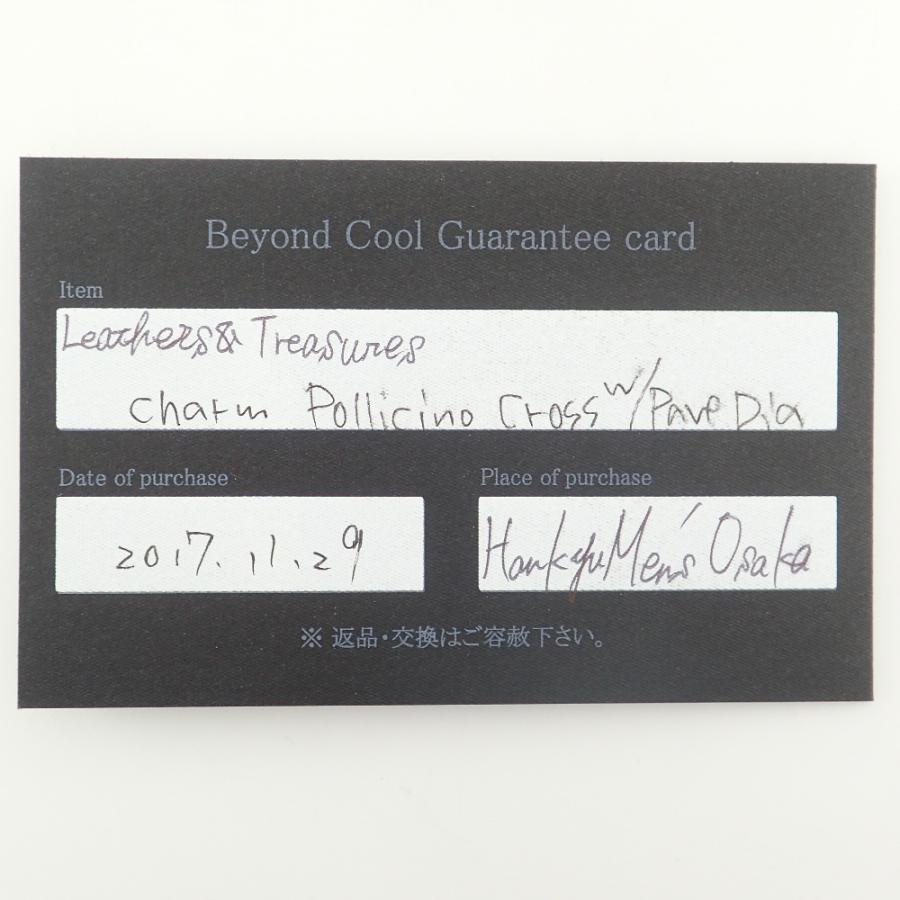 Beyond Cool Guarantee card
Item
Leathers & Treasures
Charm Pollicino Cross w/Pave Dia
Date of purchase
2017.11.29
Place of purchase
Hankyu Men's Osaka
※ 返品・交換はご容赦下さい。